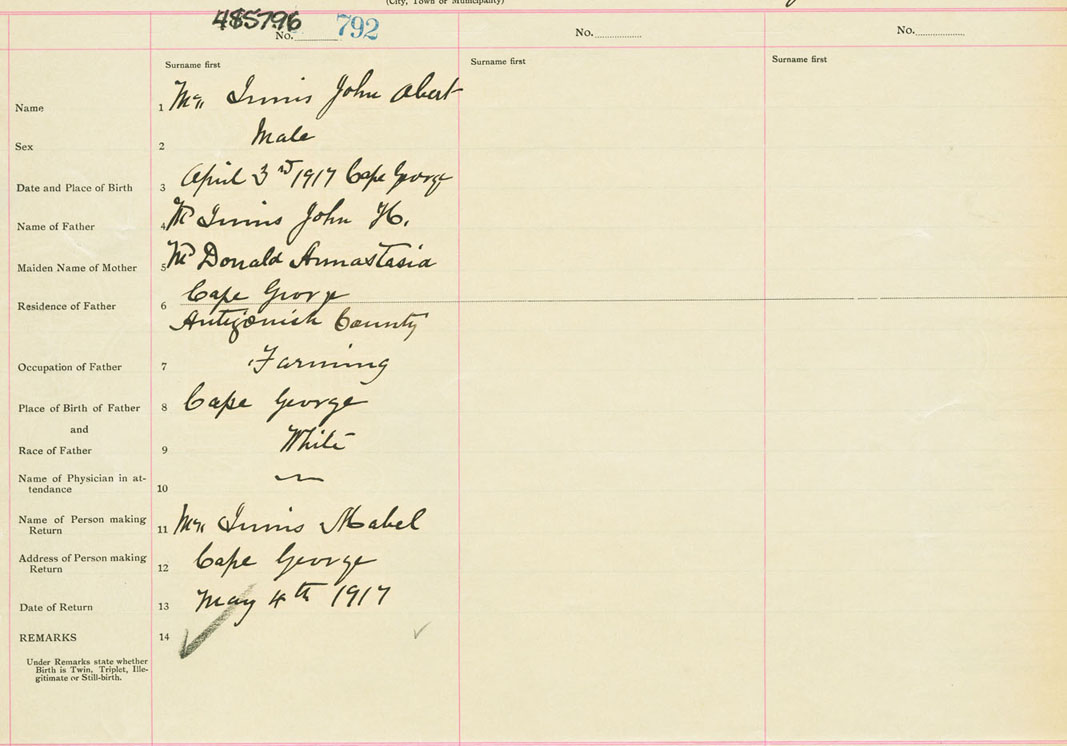 (City, Town or Municipality)
485796
No. 792
No.
No.
Surname first
Surname first
Surname first
Name 1 Mc Innis John Abert
Sex 2 Male
Date and Place of Birth 3 April 3rd 1917 Cape George
Name of Father 4 Mc Innis John H.
Maiden Name of Mother 5 Mc Donald Annastasia
Residence of Father 6 Cape George
Antigonish County
Occupation of Father 7 Farming
Place of Birth of Father 8 Cape George
and
Race of Father 9 White
Name of Physician in at-
tendance 10 —
Name of Person making
Return 11 Mc Innis Mabel
Address of Person making
Return 12 Cape George
Date of Return 13 May 4th 1917
REMARKS 14
Under Remarks state whether
Birth is Twin, Triplet, Ille-
gitimate or Still-birth.